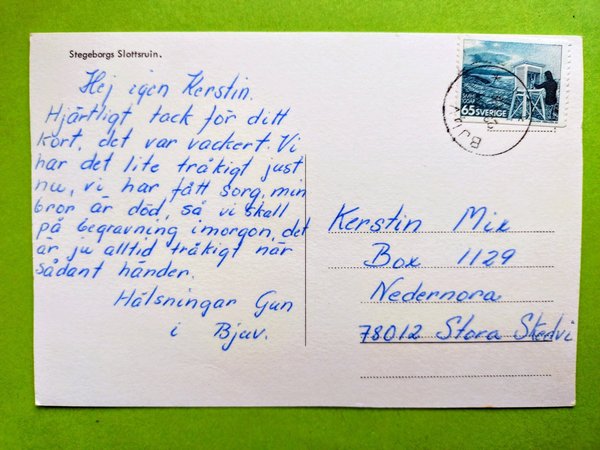 Stegeborgs Slottsruin.
Hej igen Kerstin.
Hjärtligt tack för ditt
kort, det var vackert. Vi
har det lite tråkigt just
nu, vi har fått sorg, min
bror är död, så vi skall
på begravning imorgon, det
är ju alltid tråkigt när
sådant händer.
Hälsningar Gun
i Bjuv.
65 SVERIGE
BJUV
Kerstin Mix
Box 1129
Nedernora
78012 Stora Skedvi